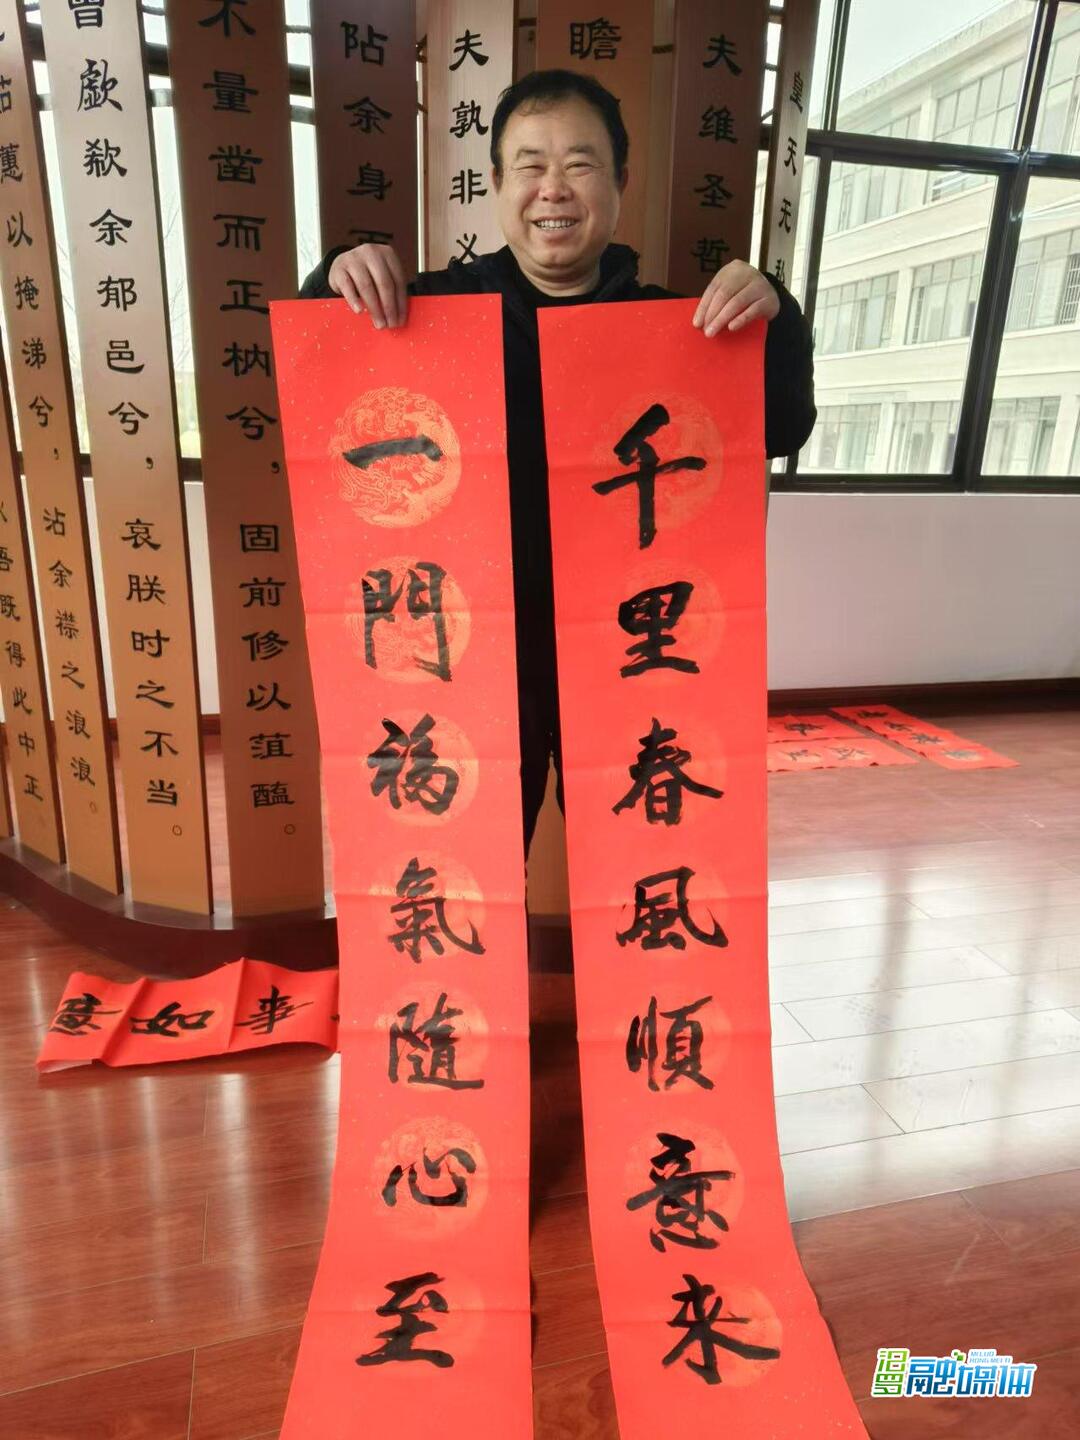 千里春風順意来
一門福氣隨心至
皇天无私
夫维圣哲
瞻
夫孰非义
阽余身而
不量凿而正枘兮,固前修以菹醢。
曾歔欷余郁邑兮,哀朕时之不当。
茹蕙以掩涕兮,沾余襟之浪浪。
吾既得此中正
意如事
汨罗融媒体
MI LUO
RONG MEI TI